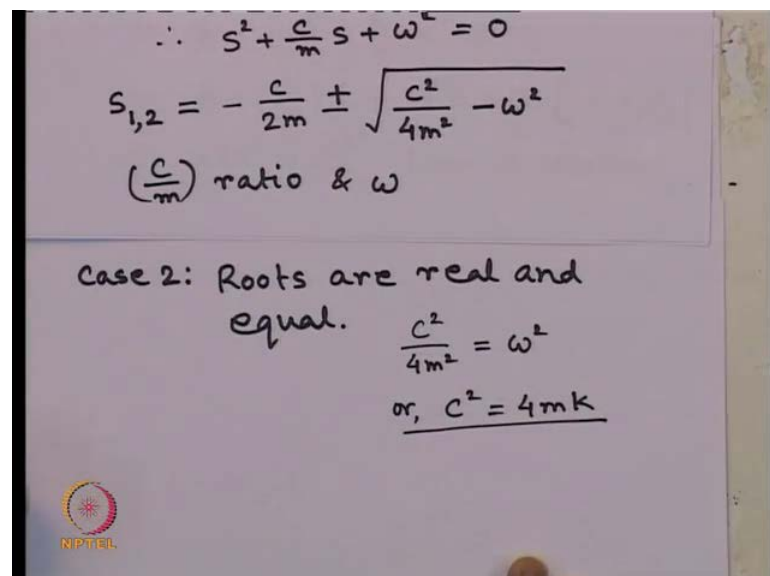 ∴ S² + c/m S + ω² = 0
S₁,₂ = - c/2m ± √(c²/4m² - ω²)
(c/m) ratio & ω
Case 2: Roots are real and
equal. c²/4m² = ω²
or, c² = 4mk
NPTEL